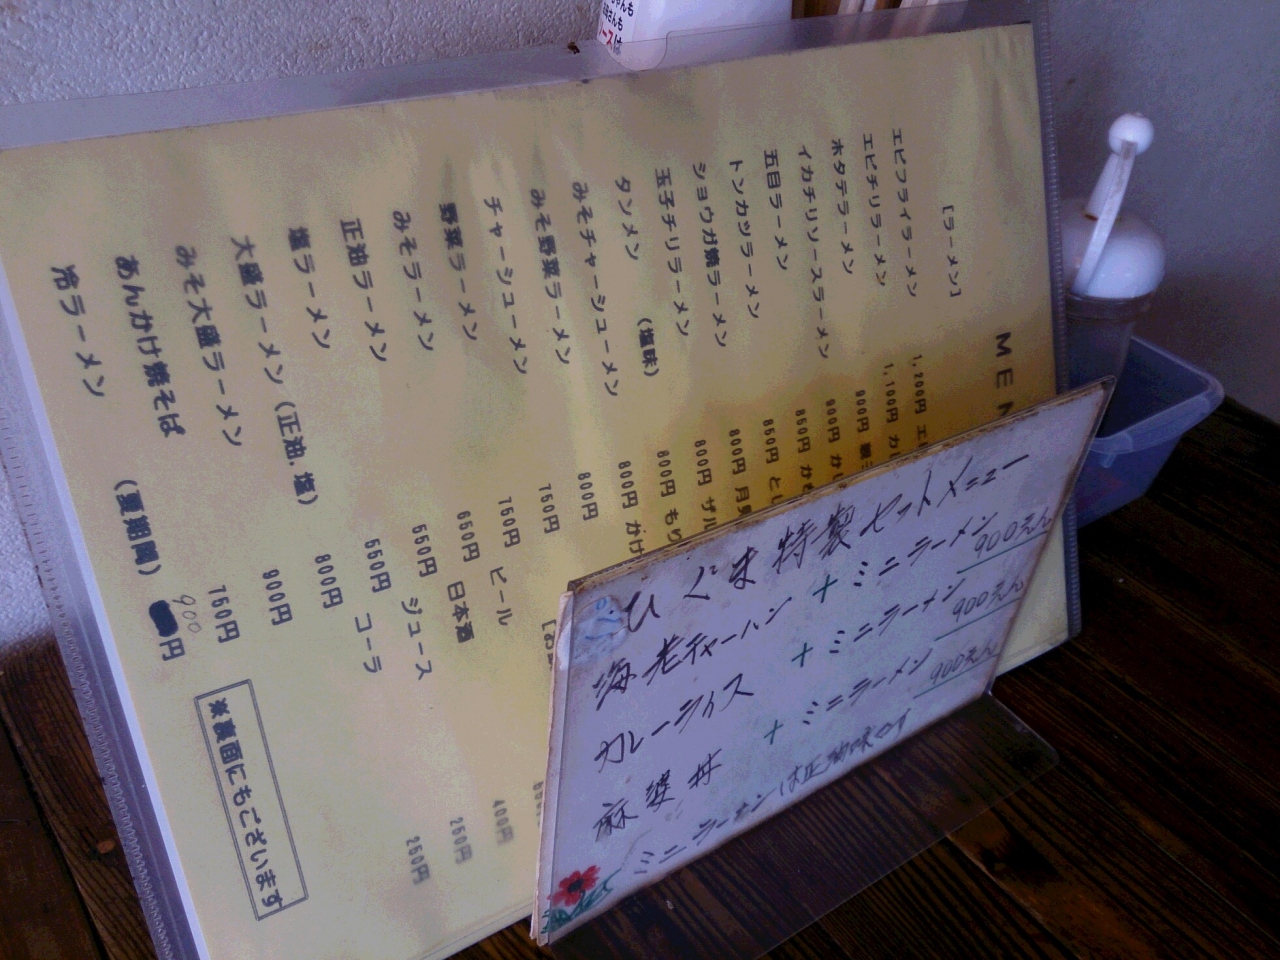 MEN
[ラーメン]
エビフライラーメン 1,200円
エビチリラーメン 1,100円
ホタテラーメン 900円
イカチリソースラーメン 900円
五目ラーメン 850円
トンカツラーメン 850円
ショウガ焼ラーメン 800円
玉子チリラーメン 800円
タンメン (塩味) 800円
みそチャーシューメン 800円
みそ野菜ラーメン 800円
チャーシューメン 750円
野菜ラーメン 750円
みそラーメン 650円
正油ラーメン 550円
塩ラーメン 550円
大盛ラーメン (正油.塩) 800円
みそ大盛ラーメン 900円
あんかけ焼そば 750円
冷ラーメン (夏期間) 900円
ザル
もり
かけ
ビール
日本酒 400円
ジュース 250円
コーラ 250円
※裏面にもございます
ひぐま特製セットメニュー
海老チャーハン + ミニラーメン 900えん
カレーライス + ミニラーメン 900えん
麻婆丼 + ミニラーメン 900えん
ミニラーメンは正油味です